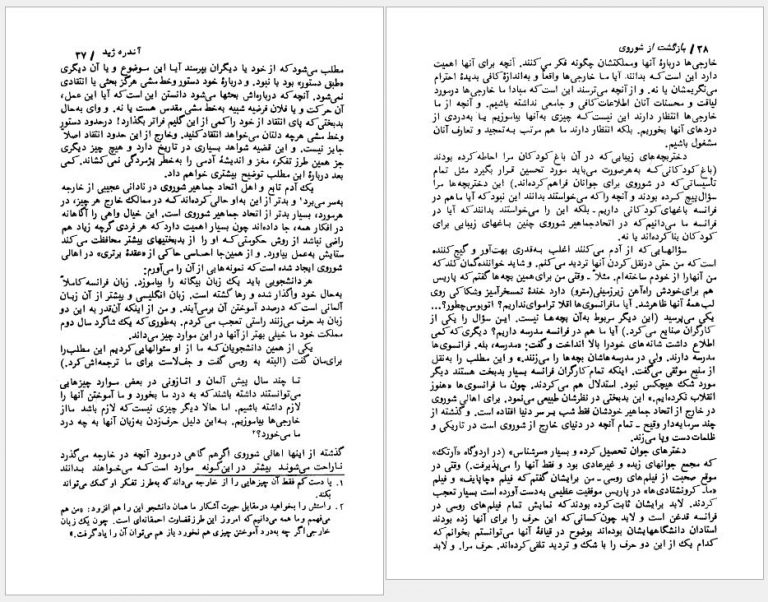 آندره ژید / ۳۷
مطلب می‌شود که از خود یا دیگران بپرسند آیا این موضوع و یا آن دیگری
طبق دستور» بود یا نبود. و دربارهٔ خود دستور وخط مشی هرگز بحثی یا انتقادی
نمی‌شود. آنچه که درباره‌اش بحثها می‌شود دانستن این است که آیا این عمل،
آن حرکت و یا فلان فرضیه شبیه به‌خط‌مشی مقدس هست یا نه. و وای به‌حال
بدبختی که پای انتقاد از خود را کمی از این گلیم فراتر بگذارد! درحدود دستور
وخط مشی هرچه دلتان می‌خواهد انتقاد کنید. وخارج از این حدود انتقاد اصلاً
جایز نیست. و این قضیه شواهد بسیاری در تاریخ دارد و هیچ چیز دیگری
جز همین طرز تفکر، مغز و اندیشهٔ آدمی را به‌خطر پژمردگی نمی‌کشاند. کمی
بعد دربارهٔ این مطلب توضیح بیشتری خواهم داد.
یک آدم تابع و اهل اتحاد جماهیر شوروی در نادانی عجیبی از خارجه
به‌سر می‌برد۱ و بدتر از این به‌او حالی کرده‌اند که در ممالک خارج هر چیز، در
هرمورد، بسیار بدتر از اتحاد جماهیر شوروی است. این خیال واهی را آگاهانه
در افکار همه، جا داده‌اند چون بسیار اهمیت دارد که هر فردی گرچه زیاد هم
راضی نباشد از روش حکومتی که او را از بدبختیهای بیشتر محافظت می‌کند
ستایش به‌عمل بیاورد. و از همین‌جا احساسی حاکی از «عقدهٔ برتری» در اهالی
شوروی ایجاد شده است که نمونه‌هایی از آن را می‌آورم:
هر دانشجویی باید یک زبان بیگانه را بیاموزد. زبان فرانسه کاملاً
به‌حال خود واگذار شده و رها گشته است. زبان انگلیسی و بیشتر از آن زبان
آلمانی است که درصدد آموختن آن برمی‌آیند. و من از اینکه آن‌قدر به این دو
زبان بد حرف می‌زنند راستی تعجب می‌کردم. به‌طوری‌که یک شاگرد سال دوم
مملکت خود ما خیلی بهتر از آنها در این موارد چیز می‌داند.
یکی از همین دانشجویان که ما از او سئوالهایی کردیم این مطلب را
برای‌مان گفت (البته به روسی گفت و جف‌لاست برای ما ترجمه‌اش کرد.)
تا چند سال پیش آلمان و اتازونی در بعضی موارد چیزهایی
می‌توانستند داشته باشند که به درد ما بخورد و ما آموختن آنها را
لازم داشته باشیم. اما حالا دیگر چیزی نیست که لازم باشد ما از
خارجی‌ها بیاموزیم. به‌این دلیل حرف‌زدن به‌زبان آنها به چه درد
ما می‌خورد؟۲
گذشته از اینها اهالی شوروی اگرهم گاهی درمورد آنچه در خارجه می‌گذرد
ناراحت می‌شوند بیشتر در این‌گونه موارد است که می‌خواهند بدانند
۱. یا دست کم فقط آن چیزهایی را از خارجه می‌داند که به‌طرز تفکر او کمک می‌تواند
بکند.
۲. راستش را بخواهید در مقابل حیرت آشکار ما همان دانشجو این را هم افزود: «من هم
می‌فهمم و ما همه می‌دانیم که امروز این طرز قضاوت احمقانه‌ای است. چون یک زبان
خارجی اگر چه به‌درد آموختن چیزی هم نخورد باز هم می‌توان آن را یاد گرفت.»
۳۸ / بازگشت از شوروی
خارجی‌ها دربارهٔ آنها ومملکتشان چگونه فکر می‌کنند. آنچه برای آنها اهمیت
دارد این است که بدانند آیا ما خارجی‌ها واقعاً و به‌اندازهٔ کافی بدیدهٔ احترام
می‌نگریمشان یا نه. و از آنچه می‌ترسند این است که مبادا ما خارجی‌ها درمورد
لیاقت و محسنات آنان اطلاعات کافی و جامعی نداشته باشیم. و آنچه از ما
خارجی‌ها انتظار دارند این نیست که چیزی به‌آنها بیاموزیم یا به‌دردی از
دردهای آنها بخوریم. بلکه انتظار دارند ما هم مرتب به‌تمجید و تعارف آنان
مشغول باشیم.
دختربچه‌های زیبایی که در آن باغ کودکان مرا احاطه کرده بودند
(باغ کودکانی که به‌هرصورت می‌باید مورد تحسین قرار بگیرد مثل تمام
تأسیساتی که در شوروی برای جوانان فراهم کرده‌اند.) این دختربچه‌ها مرا
سؤال‌پیچ کرده بودند و آنچه را که می‌خواستند بدانند این نبود که آیا ماهم در
فرانسه باغهای‌کودکانی داریم ـ بلکه این را می‌خواستند بدانند که آیا در
فرانسه ما می‌دانیم که در اتحادجماهیر شوروی چنین باغهای زیبایی برای
کودکان بنا کرده‌اند یا نه.
سؤالهایی که از آدم می‌کنند اغلب به‌قدری بهت‌آور و گیج کننده
است که من حتی درنقل کردن آنها تردید می‌کنم. و شاید خواننده‌گمان کند که
من آنها را از خودم ساخته‌ام. مثلاً ـ وقتی من برای همین بچه‌ها گفتم که پاریس
هم برای‌خودش راه‌آهن زیرزمینی(مترو) دارد خندهٔ تمسخرآمیز وشکاکی روی
لب همهٔ آنها ظاهرشد. آیا مافرانسوی‌ها اقلاً تراموای‌نداریم؟ اتوبوس‌چطور؟...
یکی می‌پرسید (این دیگر مربوط به‌آن بچه‌ها نیست. این سؤال را یکی از
کارگران صنایع می‌کرد.) آیا ما هم در فرانسه مدرسه داریم؟ دیگری که کمی
اطلاع داشت شانه‌های خود را بالا انداخت و گفت: «مدرسه، بله. فرانسوی‌ها
مدرسه دارند. ولی در مدرسه‌هاشان بچه‌ها را می‌زنند.» و این مطلب را به‌نقل
از منبع موثقی می‌گفت. اینکه تمام کارگران فرانسه بسیار بدبخت هستند دیگر
مورد شک هیچکس نبود. استدلال هم می‌کردند. چون ما فرانسوی‌ها «هنوز
انقلاب نکرده‌ایم.» این بدبختی در نظرشان طبیعی می‌نمود. برای اهالی شوروی
در خارج از اتحاد جماهیر خودشان فقط شب بر سر دنیا افتاده است. و گذشته از
چند سرمایه‌دار وقیح ـ تمام آنچه در دنیای خارج از شوروی است در تاریکی و
ظلمات دست وپا می‌زند.
دخترهای جوان تحصیل کرده و بسیار «سرشناس» (در اردوگاه «آرتک»
که مجمع جوانهای زبده و غیرعادی بود و فقط آنها را می‌پذیرفت.) وقتی در
موقع صحبت از فیلم‌های روسی ـ من برایشان گفتم که فیلم «چاپایف» و فیلم
«ما، کرونشتادی‌ها» در پاریس موفقیت عظیمی به‌دست‌آورده است بسیار تعجب
کردند. لابد برایشان ثابت کرده بودند که نمایش تمام فیلم‌های روسی در
فرانسه قدغن است و لابد چون‌کسانی که این حرف را برای آنها زده بودند
استادان دانشگاههایشان بوده‌اند بوضوح در قیافهٔ آنها می‌توانستم بخوانم که
کدام یک از این دو حرف را با شک و تردید تلقی کرده‌اند. حرف مرا. و لابد